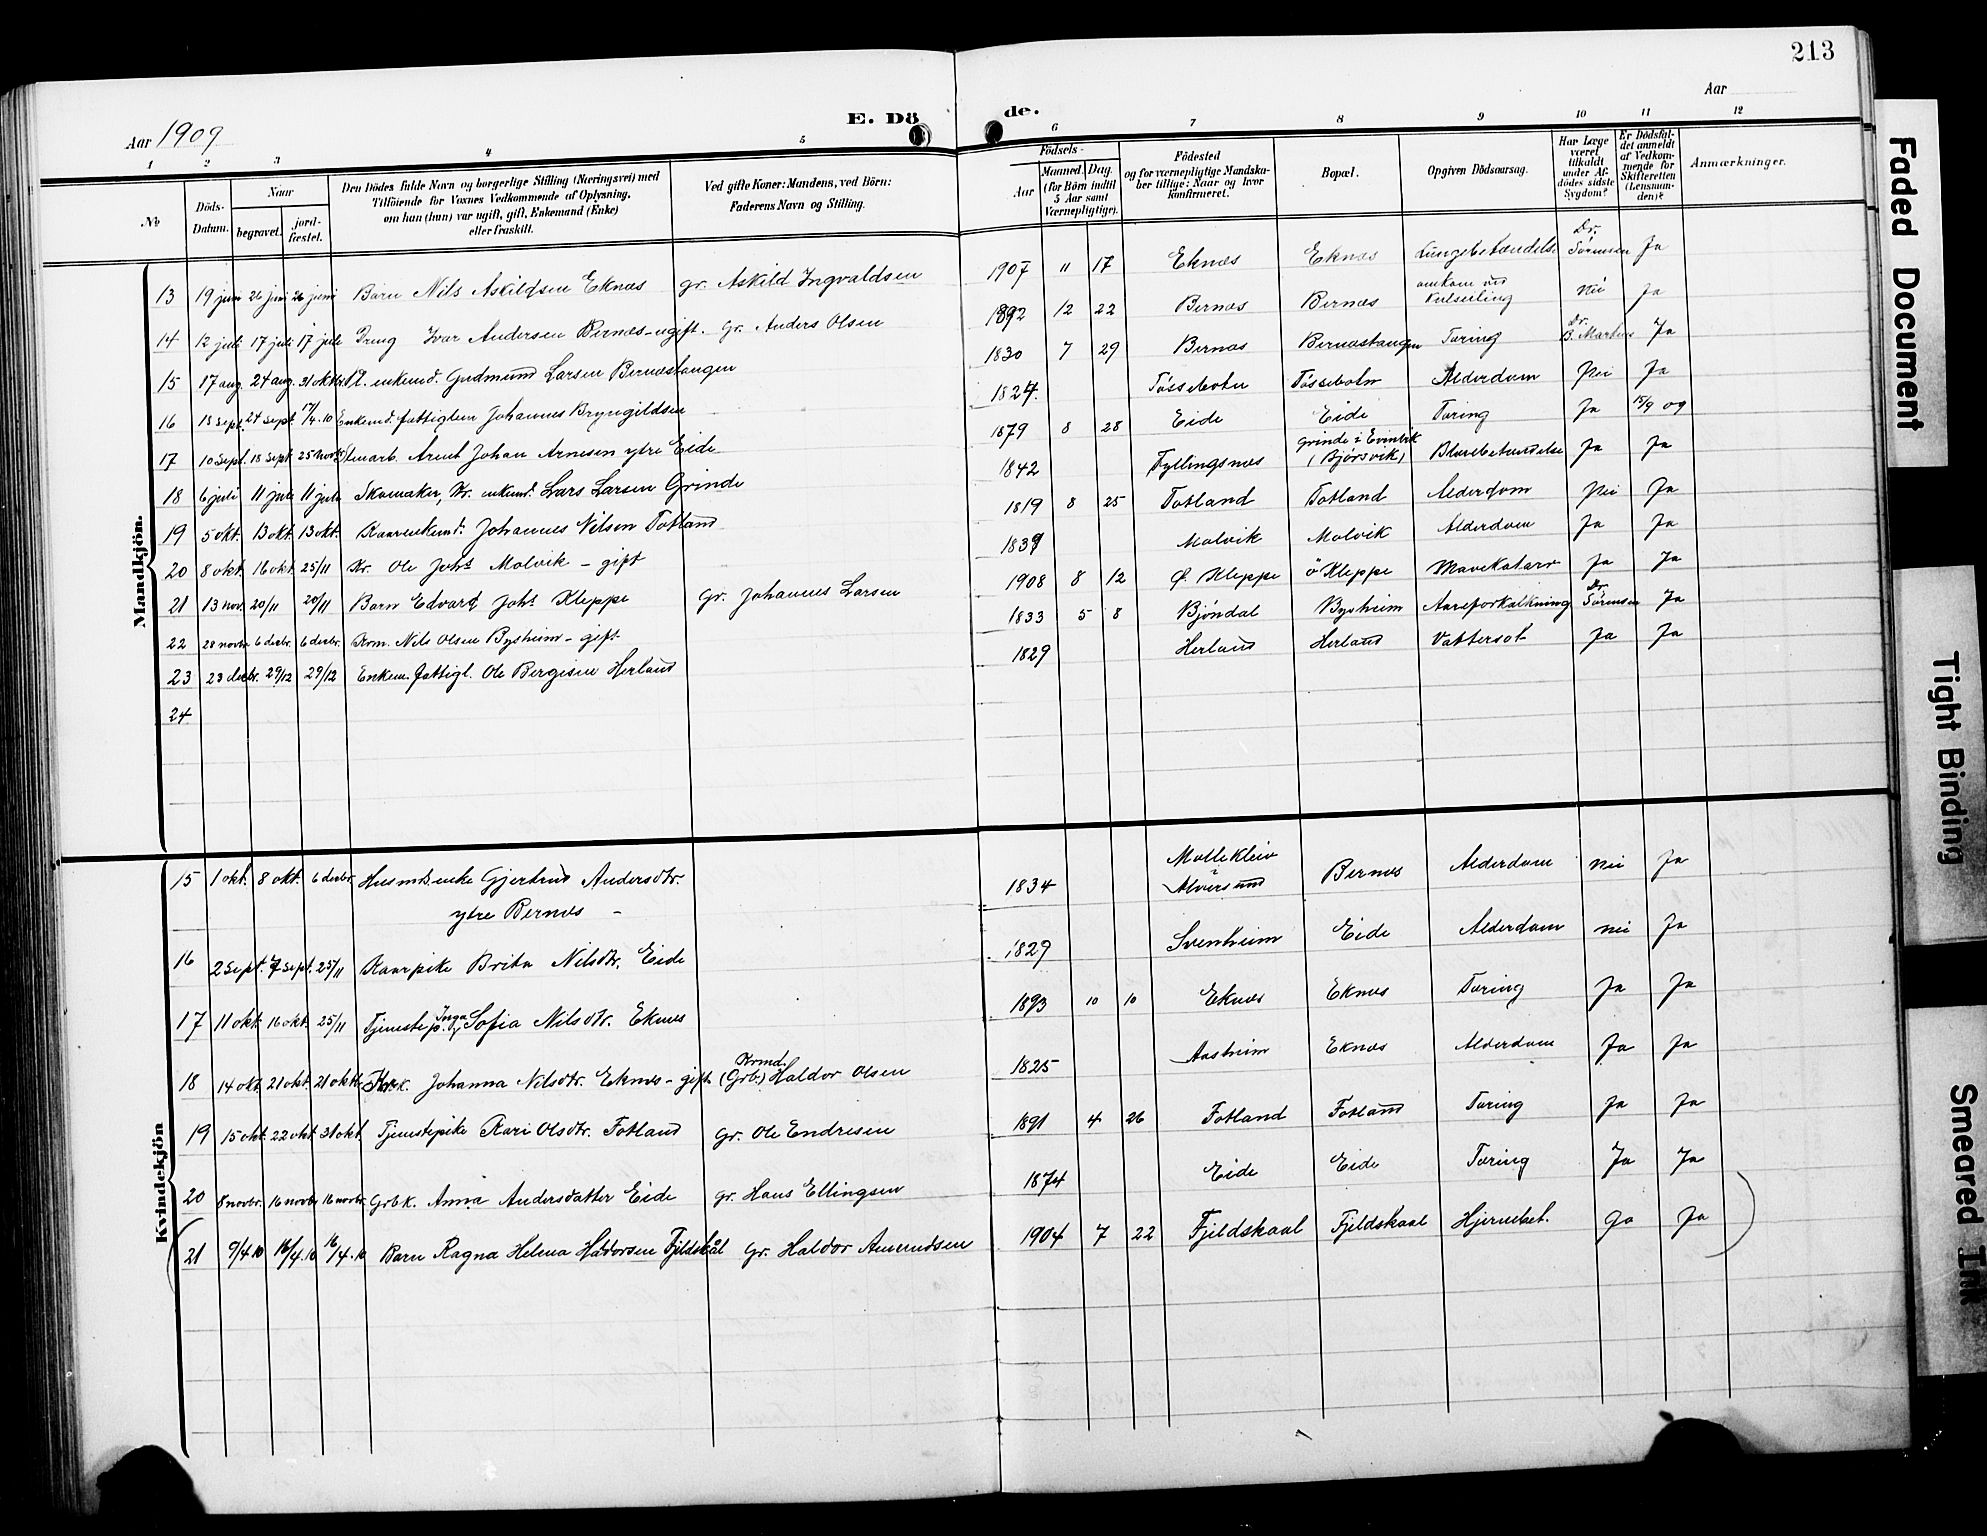 213
Aar 1909
E. Dö de.
Aar
1 2 3 4 5 6 7 8 9 10 11 12
No
Döds-Datum.
Naar
begravet.
jord-fæstet.
Den Dödes fulde Navn og borgerlige Stilling (Næringsvei) med
Tilföiende for Voxnes Vedkommende af Oplysning,
om han (hun) var ugift, gift, Enkemand (Enke)
eller fraskilt.
Ved gifte Koner: Mandens, ved Börn:
Faderens Navn og Stilling.
Födsels-
Aar
Maaned. Dag.
(for Börn indtil
5 Aar samt
Værnepligtige).
Födested
og for værnepligtige Mandska-
ber tillige: Naar og hvor
konfirmeret.
Bopæl.
Opgiven Dödsaarsag.
Har Læge
været
tilkaldt
under Af-
dödes sidste
Sygdom?
Er Dödsfal-
det anmeldt
af Vedkom-
mende for
Skifteretten
(Lensman-
den)?
Anmærkninger.
Mandkjön.
13 19 juni 26 juni 26 juni Barn Nils Askildsen Eknæs gr. Askild Ingvaldsen 1907 11 17 Eknæs Eknæs Lungebetændelse Dr. Sörensen Ja
14 12 juli 17 juli 17 juli Dreng Ivar Andersen Bernæs - ugift. Gr. Anders Olsen 1892 12 22 Bernæs Bernæs omkom ved Kulseiling nei Ja
15 17 aug. 24 aug. 31 oktbr. enkemd. Gudmund Larsen Bernæstangen 1830 7 29 Bernæs Bernæstangen Tæring Dr. B. Martens Ja
16 13 sept. 24 sept. 7/4.10 Enkemd. fattiglem Johannes Bryngildsen 1827. Tösseboln Tösseboln Alderdom Nei Ja
17 10 Sept. 18 Sept. 25 novbr. Arent Johan Arnesen ytre Eide 1879 8 28 Eide Eide Tæring Ja 15/9 09
18 6 juli 11 juli 11 juli Skomaker, Kr. enkemd. Lars Larsen Grinde 1842 Fyllingsnæs Grinde i Evinvik (Bjørsvik) Blærebetændelse Ja Ja
19 5 okt. 13 okt. 13 okt. Kaarenkemd. Johannes Nilsen Totland 1819 8 25 Totland Totland Alderdom Nei Ja
20 8 okt. 16 okt. 25/11 Kr. Ole Johs Molvik - gift 1839 Molvik Molvik Alderdom Ja Ja
21 13 nov. 20/11 20/11 Barn Edvard Johs Kleppe Gr. Johannes Larsen 1908 8 12 Ø. Kleppe ö Kleppe Mavekatarr Ja Ja
22 28 novbr 6 decbr. 6 decbr. Krm. Nils Olsen Bysheim - gift 1833 5 8 Bjöndal Bysheim Aareforkalkning Dr Sörensen Ja
23 23 decbr. 29/12 29/12 Enkem. fattigl. Ole Bergisen Herland 1829 Herland Herland Vattersot Ja Ja
24
Kvindekjön
15 1 okt. 8 okt. 6 decbr. Husmds.enke Gjertrud Andersdtr. ytre Bernæs - 1834 Mollekleiv i Alversund Bernæs Alderdom nei Ja
16 2 Sept. 7 Sept. 25/11 Kaarpike Brita Nilsdtr. Eide 1829 Svenheim Eide Alderdom nei Ja
17 11 okt. 16 okt. 25/11 Tjenestep. Inga Sofia Nilsdtr. Eknæs 1893 10 10 Eknæs Eknæs Tæring Ja Ja
18 14 okt. 21 okt. 21 oktbr. Johanna Nilsdtr. Eknæs - gift Krmd. (Grb.) Haldor Olsen 1825 Aasheim Eknæs Alderdom Ja Ja
19 15 okt. 22 okt 31 okt. Tjenestepike Kari Olsdtr. Fotland Gr. Ole Endresen 1891 4 26 Fotland Fotland Tæring Ja Ja
20 8 novbr. 16 novbr 16 novbr. Grbk. Anna Andersdatter Eide gr. Hans Ellingsen 1874 Eide Eide Tæring Ja Ja
21 9/4.10 16/4.10 16/4.10 Barn Ragna Helena Haldorsen Fjeldskål Gr. Haldor Amundsen 1904 7 22 Fjeldskaal Fjeldskaal Hjernebet. Ja Ja
Faded Document
Tight Binding
Smeared Ink